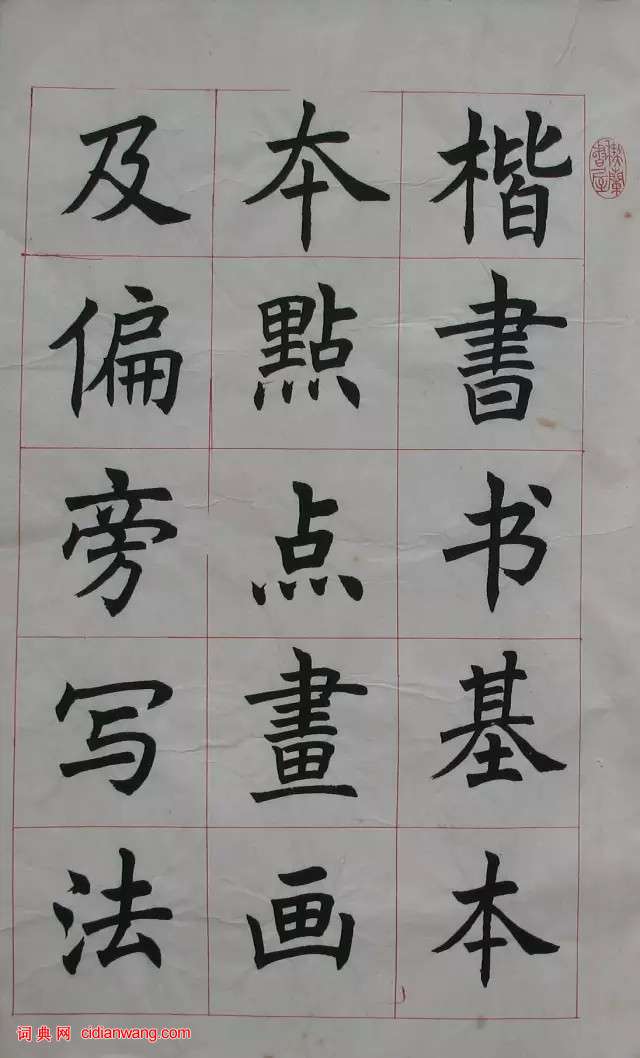 楷書书基本
夲點点畫画
及偏旁写法
词典网 cidianwang.com